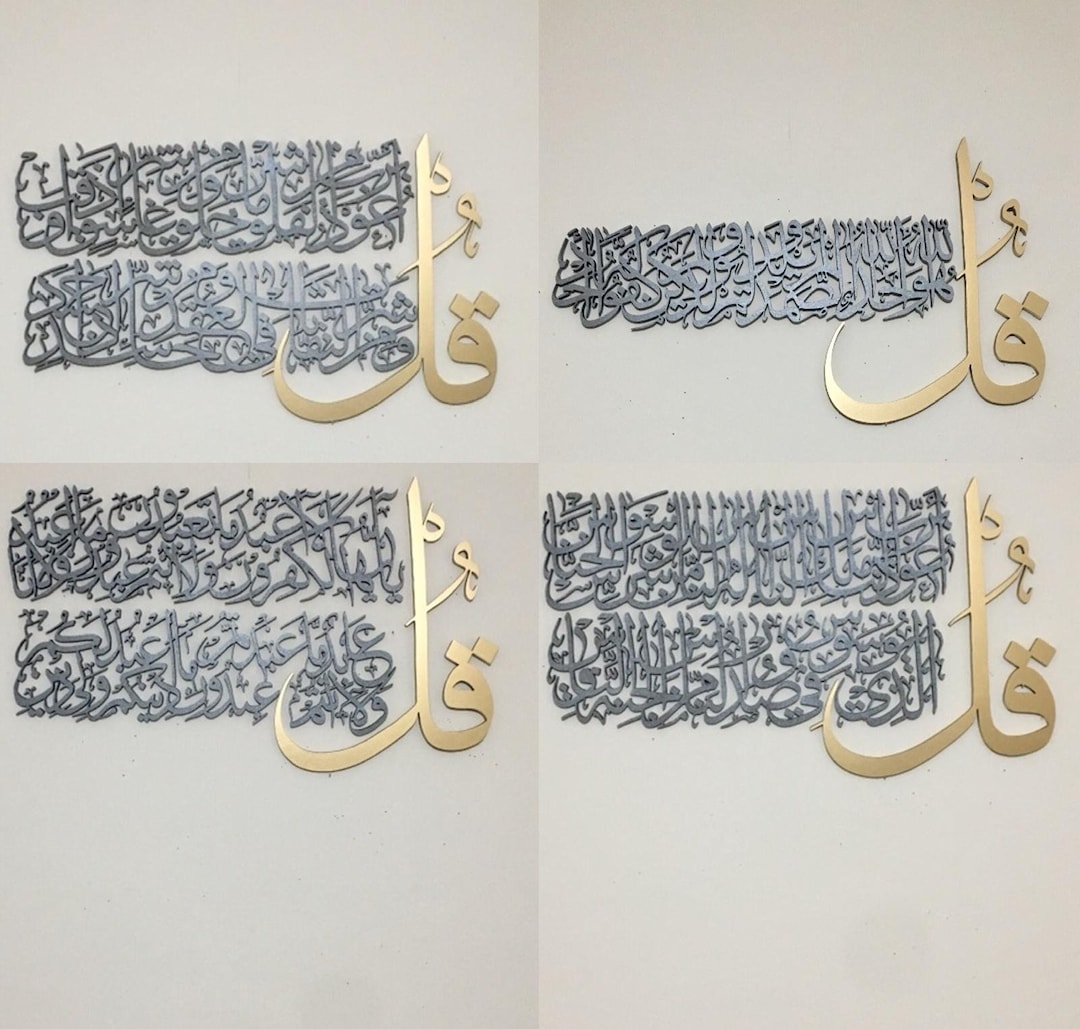 قُلْ هُوَ اللَّهُ أَحَدٌ اللَّهُ الصَّمَدُ لَمْ يَلِدْ وَلَمْ يُولَدْ وَلَمْ يَكُن لَّهُ كُفُوًا أَحَدٌ
قُلْ أَعُوذُ بِرَبِّ الْفَلَقِ مِن شَرِّ مَا خَلَقَ وَمِن شَرِّ غَاسِقٍ إِذَا وَقَبَ
وَمِن شَرِّ النَّفَّاثَاتِ فِي الْعُقَدِ وَمِن شَرِّ حَاسِدٍ إِذَا حَسَدَ
قُلْ أَعُوذُ بِرَبِّ النَّاسِ مَلِكِ النَّاسِ إِلَٰهِ النَّاسِ مِن شَرِّ الْوَسْوَاسِ الْخَنَّاسِ
الَّذِي يُوَسْوِسُ فِي صُدُورِ النَّاسِ مِنَ الْجِنَّةِ وَالنَّاسِ
قُلْ يَا أَيُّهَا الْكَافِرُونَ لَا أَعْبُدُ مَا تَعْبُدُونَ وَلَا أَنتُمْ عَابِدُونَ مَا أَعْبُدُ وَلَا أَنَا
عَابِدٌ مَّا عَبَدتُّمْ وَلَا أَنتُمْ عَابِدُونَ مَا أَعْبُدُ لَكُمْ دِينُكُمْ وَلِيَ دِينِ